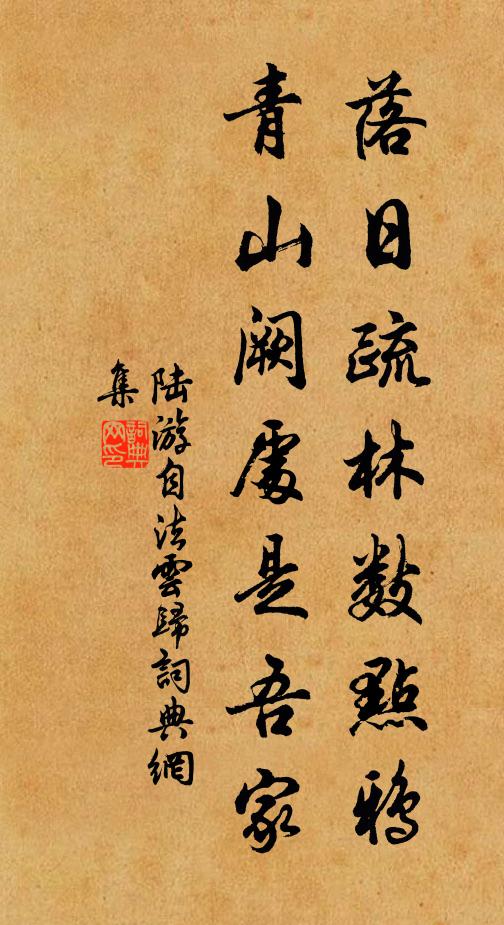 落日疏林數點鴉
青山闕處是吾家
陸游自法雲歸詞典網
集
詞典
网印